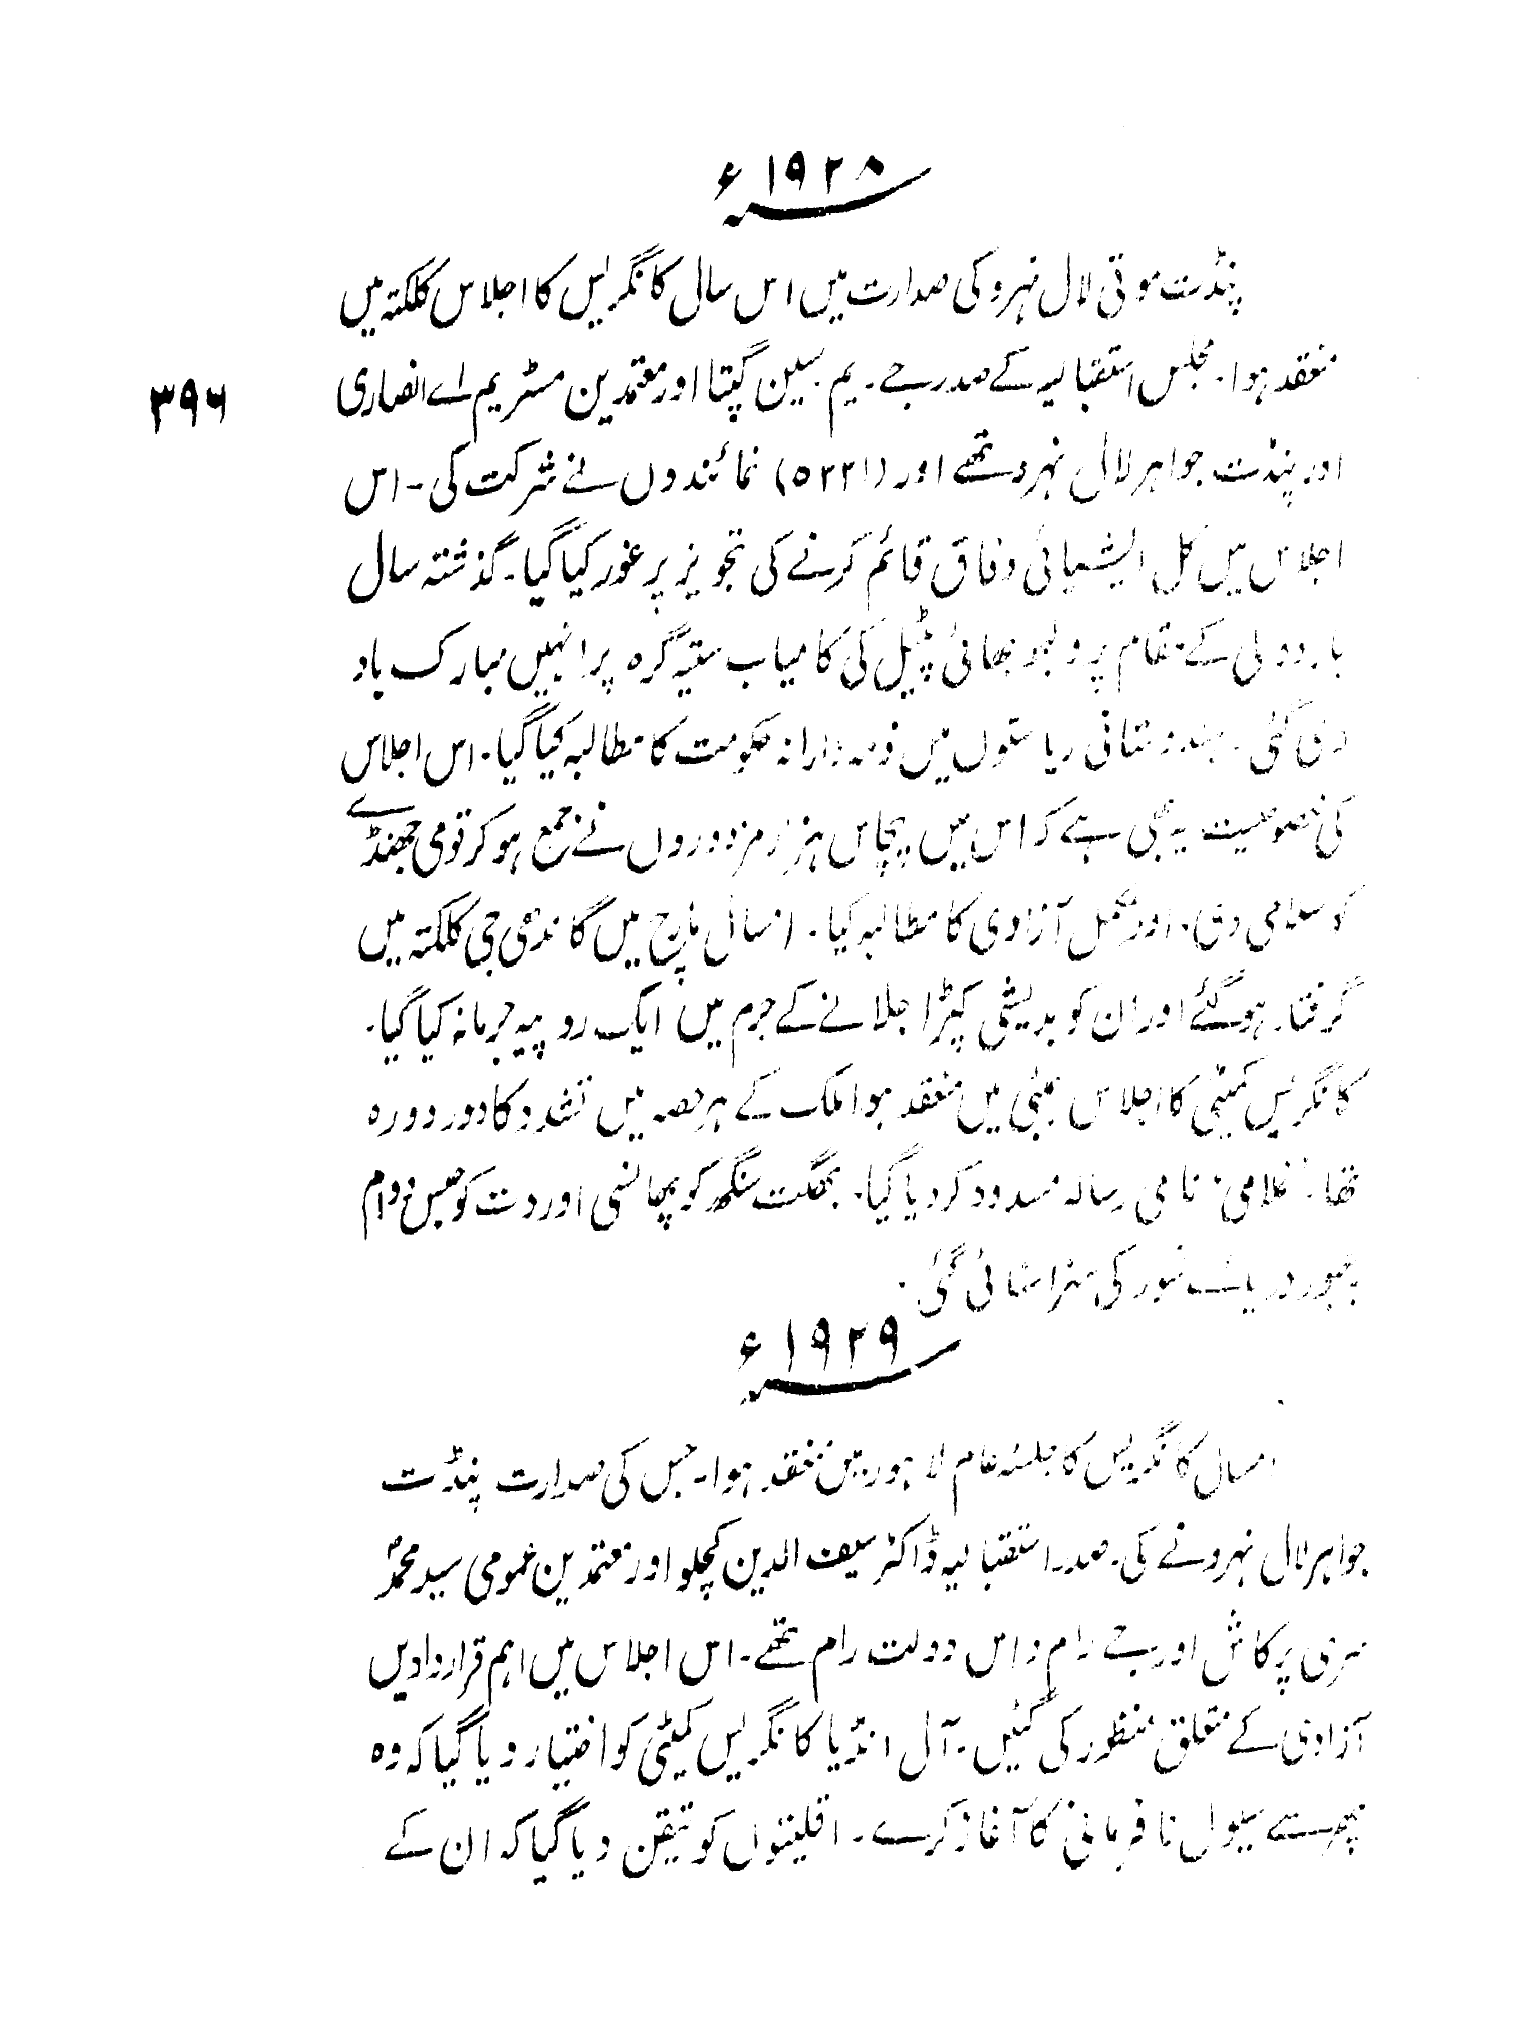 ۱۹۲۸ء
پنڈت موتی لال نہرو کی صدارت میں اس سال کانگریس کا اجلاس کلکتہ میں
منعقد ہوا۔ مجلس استقبالیہ کے صدر جے۔ یم سین گپتا اور معتمدین مسٹر یم اے انصاری
۳۹۶
اور پنڈت جواہر لال نہرو تھے اور (۵۲۲۱) نمائندوں نے شرکت کی۔ اس
اجلاس میں کل ایشیائی وفاق قائم کرنے کی تجویز پر غور کیا گیا۔ گذشتہ سال
باردولی کے مقام پر ولبھ بھائی پٹیل کی کامیاب ستیہ گرہ پر انہیں مبارک باد
دی گئی۔ ہندوستانی ریاستوں میں ذمہ دارانہ حکومت کا مطالبہ کیا گیا۔ اس اجلاس
کی خصوصیت یہ بھی ہے کہ اس میں پچاس ہزار مزدوروں نے جمع ہو کر قومی جھنڈے
کو سلامی دی۔ اور مکمل آزادی کا مطالبہ کیا۔ امسال مارچ میں گاندھی جی کلکتہ میں
گرفتار ہو گئے اور ان کو بدیشی کپڑا جلانے کے جرم میں ایک روپیہ جرمانہ کیا گیا۔
کانگریس کمیٹی کا اجلاس بمبئی میں منعقد ہوا ملک کے ہر حصہ میں تشدد کا دور دورہ
تھا۔ "غلامی" نامی رسالہ مسدود کر دیا گیا۔ بھگت سنگھ کو پھانسی اور دت کو حبس دوام
بعبور دریائے شور کی سزا سنائی گئی۔
۱۹۲۹ء
امسال کانگریس کا جلسہ عام لاہور میں منعقد ہوا۔ جس کی صدارت پنڈت
جواہر لال نہرو نے کی۔ صدر استقبالیہ ڈاکٹر سیف الدین کچلو اور معتمدین عمومی سید محمدؐ
سری پرکاش اور جے رام داس دولت رام تھے۔ اس اجلاس میں اہم قراردادیں
آزادی کے متعلق منظور کی گئیں۔ آل انڈیا کانگریس کمیٹی کو اختیار دیا گیا کہ وہ
پھر سے سیول نافرمانی کا آغاز کرے۔ اقلیتوں کو تیقن دیا گیا کہ ان کے